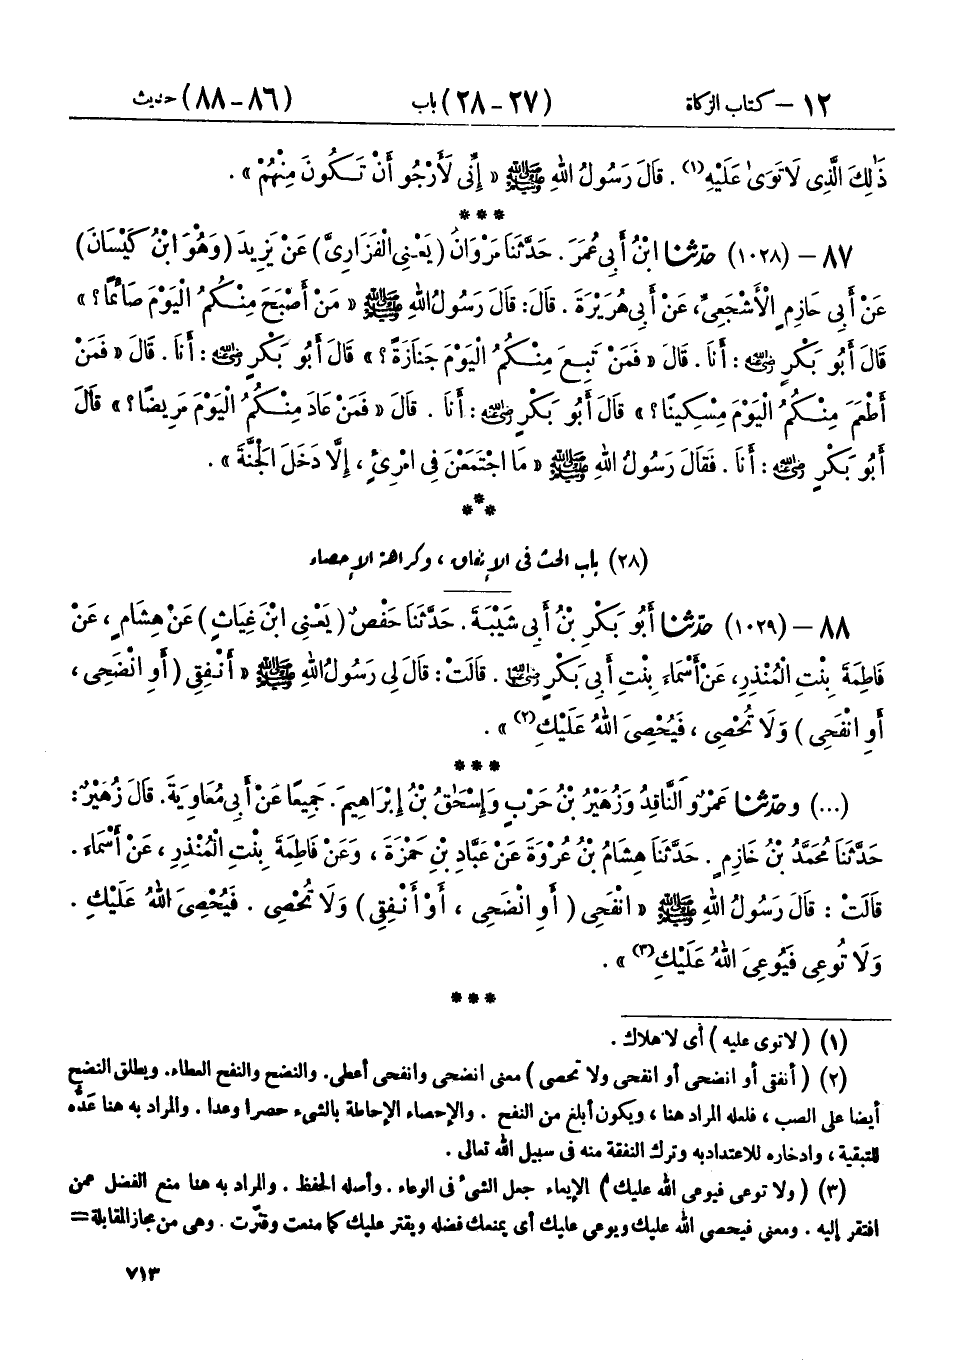 ١٢ – كتاب الزكاة (٢٧ – ٢٨) باب (٨٦ – ٨٨) حديث
ذَٰلِكَ الَّذِى لَا تَوَىٰ عَلَيْهِ(١) . قَالَ رَسُولُ اللهِ ﷺ « إِنِّى لَأَرْجُو أَنْ تَكُونَ مِنْهُمْ » .
***
٨٧ – (١٠٢٨) حدّثنا ابْنُ أَبِى عُمَرَ . حَدَّثَنَا مَرْوَانُ (يَعْنِى الْفَزَارِىَّ) عَنْ يَزِيدَ (وَهُوَ ابْنُ كَيْسَانَ)
عَنْ أَبِى حَازِمٍ الْأَشْجَعِىِّ، عَنْ أَبِى هُرَيْرَةَ . قَالَ: قَالَ رَسُولُ اللهِ ﷺ « مَنْ أَصْبَحَ مِنْكُمُ الْيَوْمَ صَائِمًا؟ »
قَالَ أَبُو بَكْرٍ رضي الله عنه : أَنَا . قَالَ « فَمَنْ تَبِعَ مِنْكُمُ الْيَوْمَ جَنَازَةً؟ » قَالَ أَبُو بَكْرٍ رضي الله عنه : أَنَا . قَالَ « فَمَنْ
أَطْعَمَ مِنْكُمُ الْيَوْمَ مِسْكِينًا؟ » قَالَ أَبُو بَكْرٍ رضي الله عنه : أَنَا . قَالَ « فَمَنْ عَادَ مِنْكُمُ الْيَوْمَ مَرِيضًا؟ » قَالَ
أَبُو بَكْرٍ رضي الله عنه : أَنَا . فَقَالَ رَسُولُ اللهِ ﷺ « مَا اجْتَمَعْنَ فِى امْرِئٍ ، إِلَّا دَخَلَ الْجَنَّةَ » .
***
(٢٨) باب الحث فى الإنفاق ، وكراهة الإحصاء
٨٨ – (١٠٢٩) حدّثنا أَبُو بَكْرِ بْنُ أَبِى شَيْبَةَ . حَدَّثَنَا حَفْصٌ (يَعْنِى ابْنَ غِيَاثٍ) عَنْ هِشَامٍ ، عَنْ
فَاطِمَةَ بِنْتِ الْمُنْذِرِ، عَنْ أَسْمَاءَ بِنْتِ أَبِى بَكْرٍ رضي الله عنها . قَالَتْ: قَالَ لِى رَسُولُ اللهِ ﷺ « أَنْفِقِى (أَوِ انْضَحِى ،
أَوِ انْفَحِى) وَلَا تُحْصِى ، فَيُحْصِىَ اللهُ عَلَيْكِ(٢) » .
***
(...) وحدّثنا عَمْرٌو النَّاقِدُ وَزُهَيْرُ بْنُ حَرْبٍ وَإِسْحَقُ بْنُ إِبْرَاهِيمَ. جَمِيعًا عَنْ أَبِى مُعَاوِيَةَ. قَالَ زُهَيْرٌ:
حَدَّثَنَا مُحَمَّدُ بْنُ خَازِمٍ . حَدَّثَنَا هِشَامُ بْنُ عُرْوَةَ عَنْ عَبَّادِ بْنِ حَمْزَةَ ، وَعَنْ فَاطِمَةَ بِنْتِ الْمُنْذِرِ ، عَنْ أَسْمَاءَ .
قَالَتْ : قَالَ رَسُولُ اللهِ ﷺ « انْفَحِى (أَوِ انْضَحِى ، أَوْ أَنْفِقِى) وَلَا تُحْصِى . فَيُحْصِىَ اللهُ عَلَيْكِ .
وَلَا تُوعِى فَيُوعِىَ اللهُ عَلَيْكِ(٣) » .
***
(١) (لا توى عليه) أى لا هلاك .
(٢) (أنفقى أو انضحى أو انفحى ولا تحصى) معنى انضحى وانفحى أعطى. والنضح والنفح العطاء. ويطلق النضح
أيضا على الصب ، فلعله المراد هنا ، ويكون أبلغ من النفح . والإحصاء الإحاطة بالشىء حصرا وعدا . والمراد به هنا عدّه
للتبقية ، وادخاره للاعتداد به وترك النفقة منه فى سبيل الله تعالى .
(٣) (ولا توعى فيوعى الله عليك) الإيعاء جعل الشىء فى الوعاء . وأصله الحفظ . والمراد به هنا منع الفضل عمن
افتقر إليه . ومعنى فيحصى الله عليك ويوعى عليك أى يمنعك فضله ويقتر عليك كما منعت وقترت . وهى من مجاز المقابلة =
٧١٣